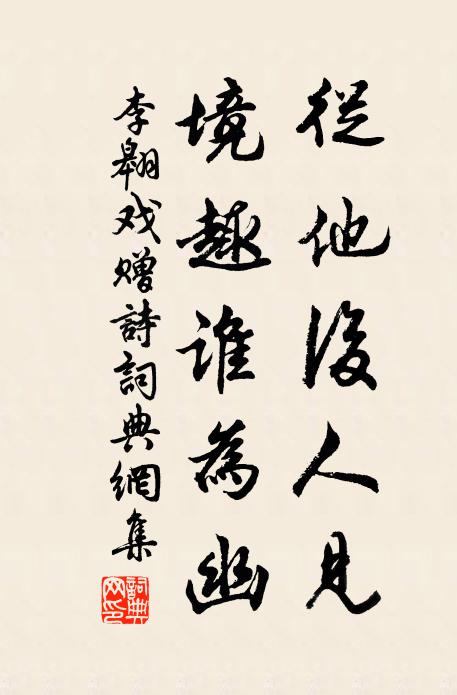 從他後人見
境趣誰為幽
李翱戏贈詩詞典網集
詞典
网印